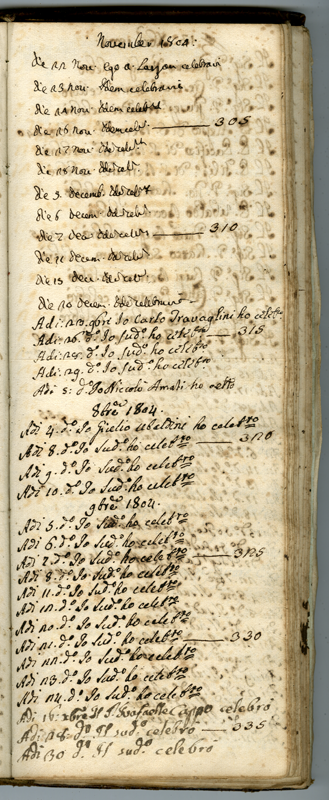 November 1804.
die 22 Nov. Ego a celebravi
die 23 Nov. Idem celebravi
die 24 Nov. Idem celebt
die 26 Nov. Idem celebt. — 305
die 27 Nov. Id celt
die 28 Nov. Id celt.
die 3. Decemb. Id celt
die 6 Decem. Id celt
die 7 Dec. Id celt — 310
die 11 Decem. Id celt
die 15 Dece. Id celt
die 26 Decem. Id celebravi
Adi 23. 9bri Io Carlo Travaglini ho celebro
Adi 26. do. Io Sudo. ho celebro — 315
Adi 28. do. Io Sudo. ho celebro
Adi 29. do. Io Sudo. ho celebro
Adi 5: do Io Niccolo Amati ho
8bre 1804.
Adi 4. do. Io Giulio Ubaldini ho celebro
Adi 8. do. Io Sudo. ho celebro — 320
Adi 9. do. Io Sudo. ho celebro
Adi 10. do. Io Sudo. ho celebro
9bre 1804.
Adi 5. do. Io Sudo. ho celebro
Adi 6. do. Io Sudo. ho celebro
Adi 7. do. Io Sudo. ho celebro — 325
Adi 8. do. Io Sudo. ho celebro
Adi 11. do. Io Sudo. ho celebro
Adi 12. do. Io Sudo. ho celebro
Adi 20. do. Io Sudo. ho celebro
Adi 21. do. Io Sudo. ho celebro — 330
Adi 22. do. Io Sudo. ho celebro
Adi 23. do. Io Sudo. ho celebro
Adi 24. do. Io Sudo. ho celebro
Adi 16: Il P. Raffaelle Campo celebro
Adi 28: do. Il sudo. celebro — 335
Adi 30 do. Il sudo. celebro